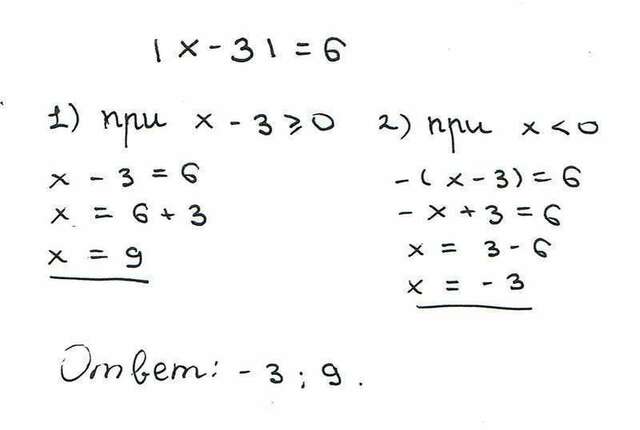 |x-3|=6
1) при x-3⩾0
x-3=6
x=6+3
x=9
2) при x<0
-(x-3)=6
-x+3=6
x=3-6
x=-3
Ответ: -3; 9.